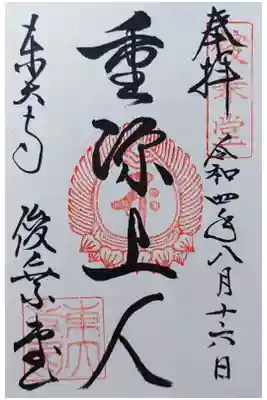 奉拝
俊乗堂
令和四年八月十六日
重源上人
東大寺
俊乗堂